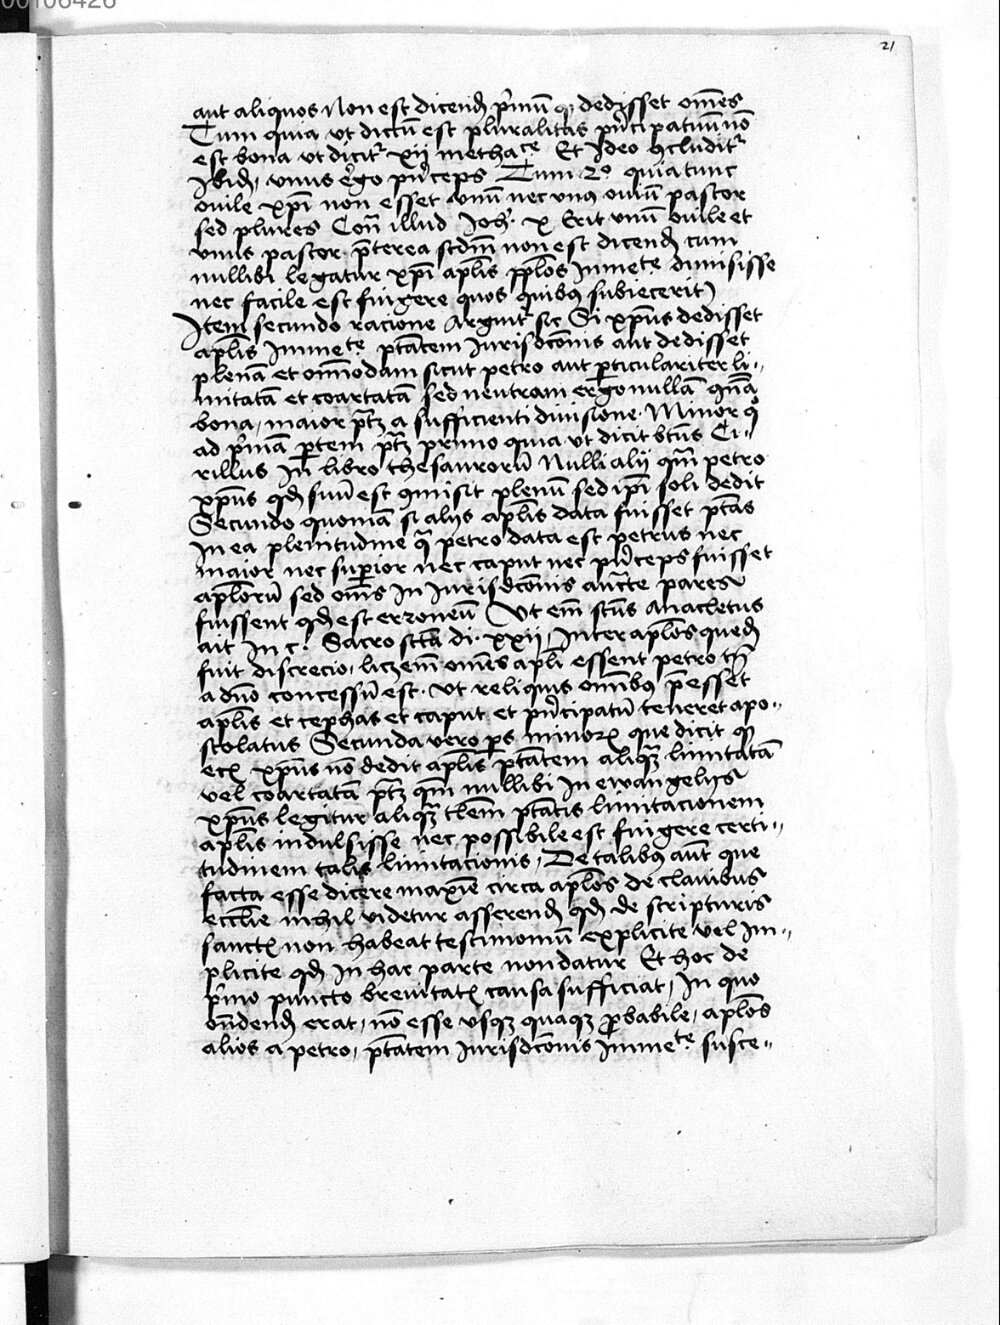 00106426
21
aut aliquos Non est dicend p̄mū q dedisset om̄es
Tum quia vt dictū est pluralitas pn̄cipatuū nō
est bona vt dicit᷑ xij methace Et Ideo ꝯcludit᷑
Ibid, vnus ergo pn̄ceps Tum 2o quia tunc
ouile xp̄i non esset vnū nec vnꝰ ouiū pastor
sed plures Con̄ illud Joh. x Erit vnū ouile et
vnus pastor p̄terea scd̄m non est dicend cum
nullibi legatur xp̄i ap̄lis pp̄los Inmete dimisisse
nec facile est fingere quos quibꝰ subiecerit
Item secundo racione Arguit᷑ sic Si xp̄us dedisset
ap̄lis Inmete ptātem Iurisdcōnis aut dedisset
plenā et om̄odam sicut petro aut ꝑticulariter li„
mitatā et coartatā sed neutram ergo nullā qn̄a
bona, maior ptꝫ a sufficienti diuisione. Minor q
ad p̄mā ꝑtem ptꝫ primo quia vt dicit bt̄us Ci„
rillus In libro thesaurorū Nulli alij qm̄ petro
xp̄us qd suū est ꝯmisit plenū sed ip̄i soli dedit
Secundo quoniā si alijs ap̄lis data fuisset ptās
In ea plenitudine q̄ petro data est petrus nec
maior nec suꝑior nec caput nec pn̄ceps fuisset
ap̄lorū sed om̄s In Iurisdcōnis auc̄te pares
fuissent qd est erroneū Vt em̄ sc̄us Anacletus
ait In c. Sacroscta di. xxij, Inter ap̄los qued
fuit discrecio, licꝫ em̄ om̄es ap̄li essent petro tn̄
a dn̄o concessū est. vt reliquis om̄ibꝰ p̄esset
ap̄lis et cephas et caput et pn̄cipatū teneret apo„
stolatus Secunda vero ps minor que dicit q
ec xp̄us nō dedit ap̄lis ptātem aliqꝫ limitatā
vel coartatā ptꝫ qm̄ nullibi In ewangelijs
xp̄us legitur aliqꝫ tlem ptātis limitacionem
ap̄lis indulsisse nec possibile est fingere certi„
tudinem talis limitacionis, De talibꝰ aūt que
facta esse dicere maxīe circa ap̄los de clauibus
eccl̄ie nihil videtur asserend qd de scripturis
sanct non habeat testimoniū explicite vel Im„
plicite qd In hac parte non datur Et hoc de
p̄mo puncto breuitat causa sufficiat, In quo
on̄dend erat, nō esse vsqꝫ quaqꝫ ꝓbabile, ap̄los
alios a petro, ptātem Iurisdcōnis Inmete susce„